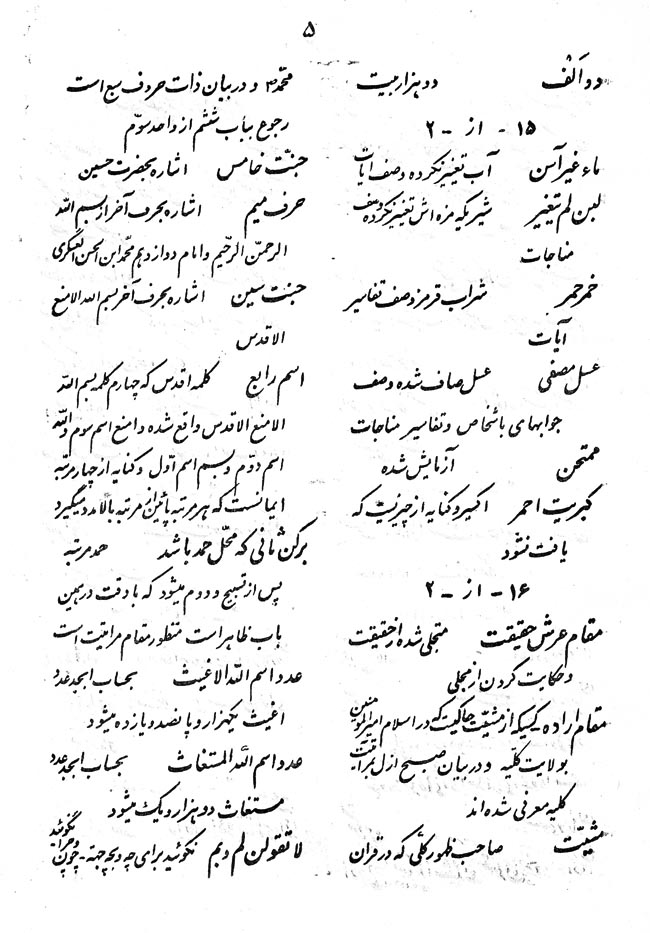 ۵
دو اَلْف دو هزار بیت
۱۵ - از - ۲
ماء غیر آسن آب تغییر نکرده وصف آیات
لبن لم تغییر شیریکه مزه اش تغییر نکرده وصف
مناجات
خمر حمر شراب قرمز وصف تفاسیر
آیات
عسل مصفی عسل صاف شده وصف
جوابهای باشخاص و تفاسیر مناجات
ممتحن آزمایش شده
کبریت احمر اکسیر و کنایه از چیزیست که
یافت نشود
۱۶ - از - ۲
مقام عرش حقیقت متجلی شده از حقیقت
و حکایت کردن از مجلی
مقام اراده - کسیکه از مشیّت حاکیست که در اسلام امیرالمومنین
بولایت کلّیه و در بیان صبح ازل بمرآتیت
کلیه معرفی شده اند
مشیّت صاحب ظهور کلّی که در قرآن
محمّد ص و در بیان ذات حروف سبع است
رجوع بباب ششم از واحد سوّم
جنّت خامس اشاره بحضرت حسین
حرف میم اشاره بحرف آخر از بسم الله
الرحمن الرحیم و امام دوازدهم محمد ابن الحسن العسکری
جنت سین اشاره بحرف آخر بسم الله الامنع
الاقدس
اسم رابع کلمه اقدس که چهارم کلمه بسم الله
الامنع الاقدس واقع شده و امنع اسم سوم و الله
اسم دوّم و بسم اسم اوّل و کنایه از چهار مرتبه
ایمانست که هر مرتبه پائین از مرتبه بالا مدد میگیرد
برکن ثانی که محّل حمد باشد حمد مرتبه
پس از تسبیح و دوم میشود که با دقت در همین
باب ظاهر است منظور مقام مرآتیت است
عدد اسم الله الاغیث بحساب ابجد عدد
اغیث یکهزار و پانصد و یازده میشود
عدد اسم الله المستغاث بحساب ابجد عدد
مستغاث دو هزار و یک میشود
لا تقولن لم و بم نگوئید برای چه و بچه جهة - چون و چرا نگوئید